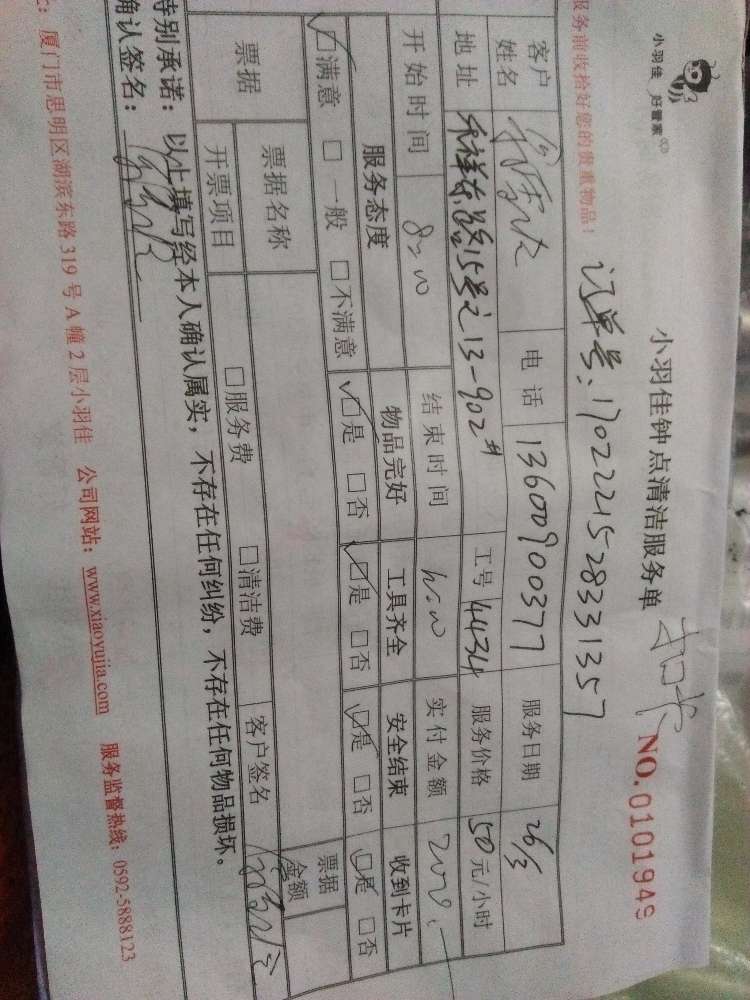 小羽佳 好管家
小羽佳钟点清洁服务单
扣卡
NO.0101949
服务前收拾好您的贵重物品！
订单号：1702221528331357
客户姓名 电话 13600900377 服务日期 26/3
地址 禾祥东路15号之13-902 工号 4434 服务价格 50元/小时
开始时间 8:00 结束时间 实付金额 200
服务态度 物品完好 工具齐全 安全结束 收到卡片
☑满意 □一般 □不满意 ☑是 □否 ☑是 □否 ☑是 □否 ☑是 □否
票据 票据名称 票据金额
开票项目 □服务费 □清洁费 客户签名
特别承诺：以上填写经本人确认属实，不存在任何纠纷，不存在任何物品损坏。
确认签名：
厦门市思明区湖滨东路319号A幢2层小羽佳 公司网站：www.xiaoyujia.com 服务监督热线：0592-5888123